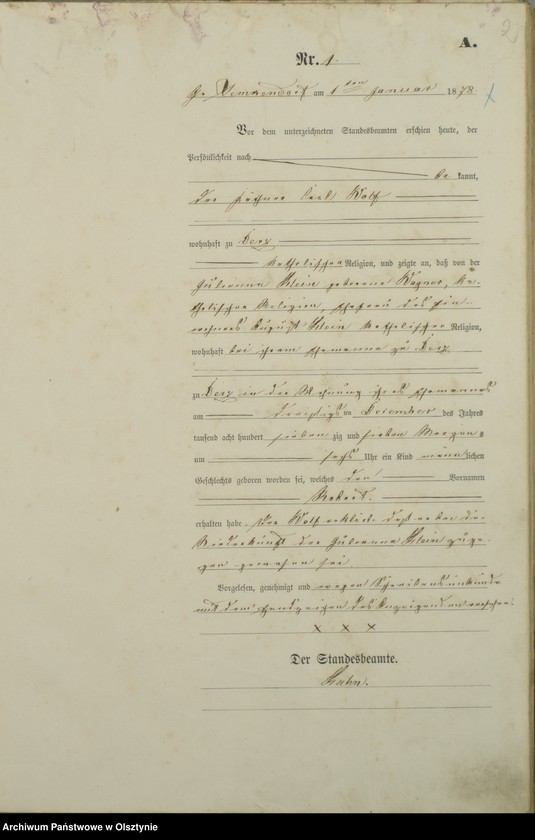 A.
2
Nr. 1.
am 1ten Januar 1878.
Vor dem unterzeichneten Standesbeamten erschien heute, der
Persönlichkeit nach
be kannt,
der Käthner Wolf
wohnhaft zu Derz
katholischer Religion, und zeigte an, daß von der
Julianna Klein geborene Wagner, ka-
tholischer Religion, Ehefrau des Ein-
wohners August Klein katholischer Religion,
wohnhaft bei ihrem Ehemanne zu Derz
zu Derz in der Wohnung ihres Ehemannes
am dreißigsten Dezember des Jahres
tausend acht hundert sieben zig und sieben Morgens
um sechs Uhr ein Kind männlichen
Geschlechts geboren worden sei, welches den Vornamen
Robert
erhalten habe. Der Wolf erklärt, daß er bei der
Niederkunft der Julianna Klein zuge-
gen gewesen sei.
Vorgelesen, genehmigt und wegen Schreibensunkunde
mit dem Handzeichen des Anzeigenden versehen.
x x x
Der Standesbeamte.
Archiwum Państwowe w Olsztynie